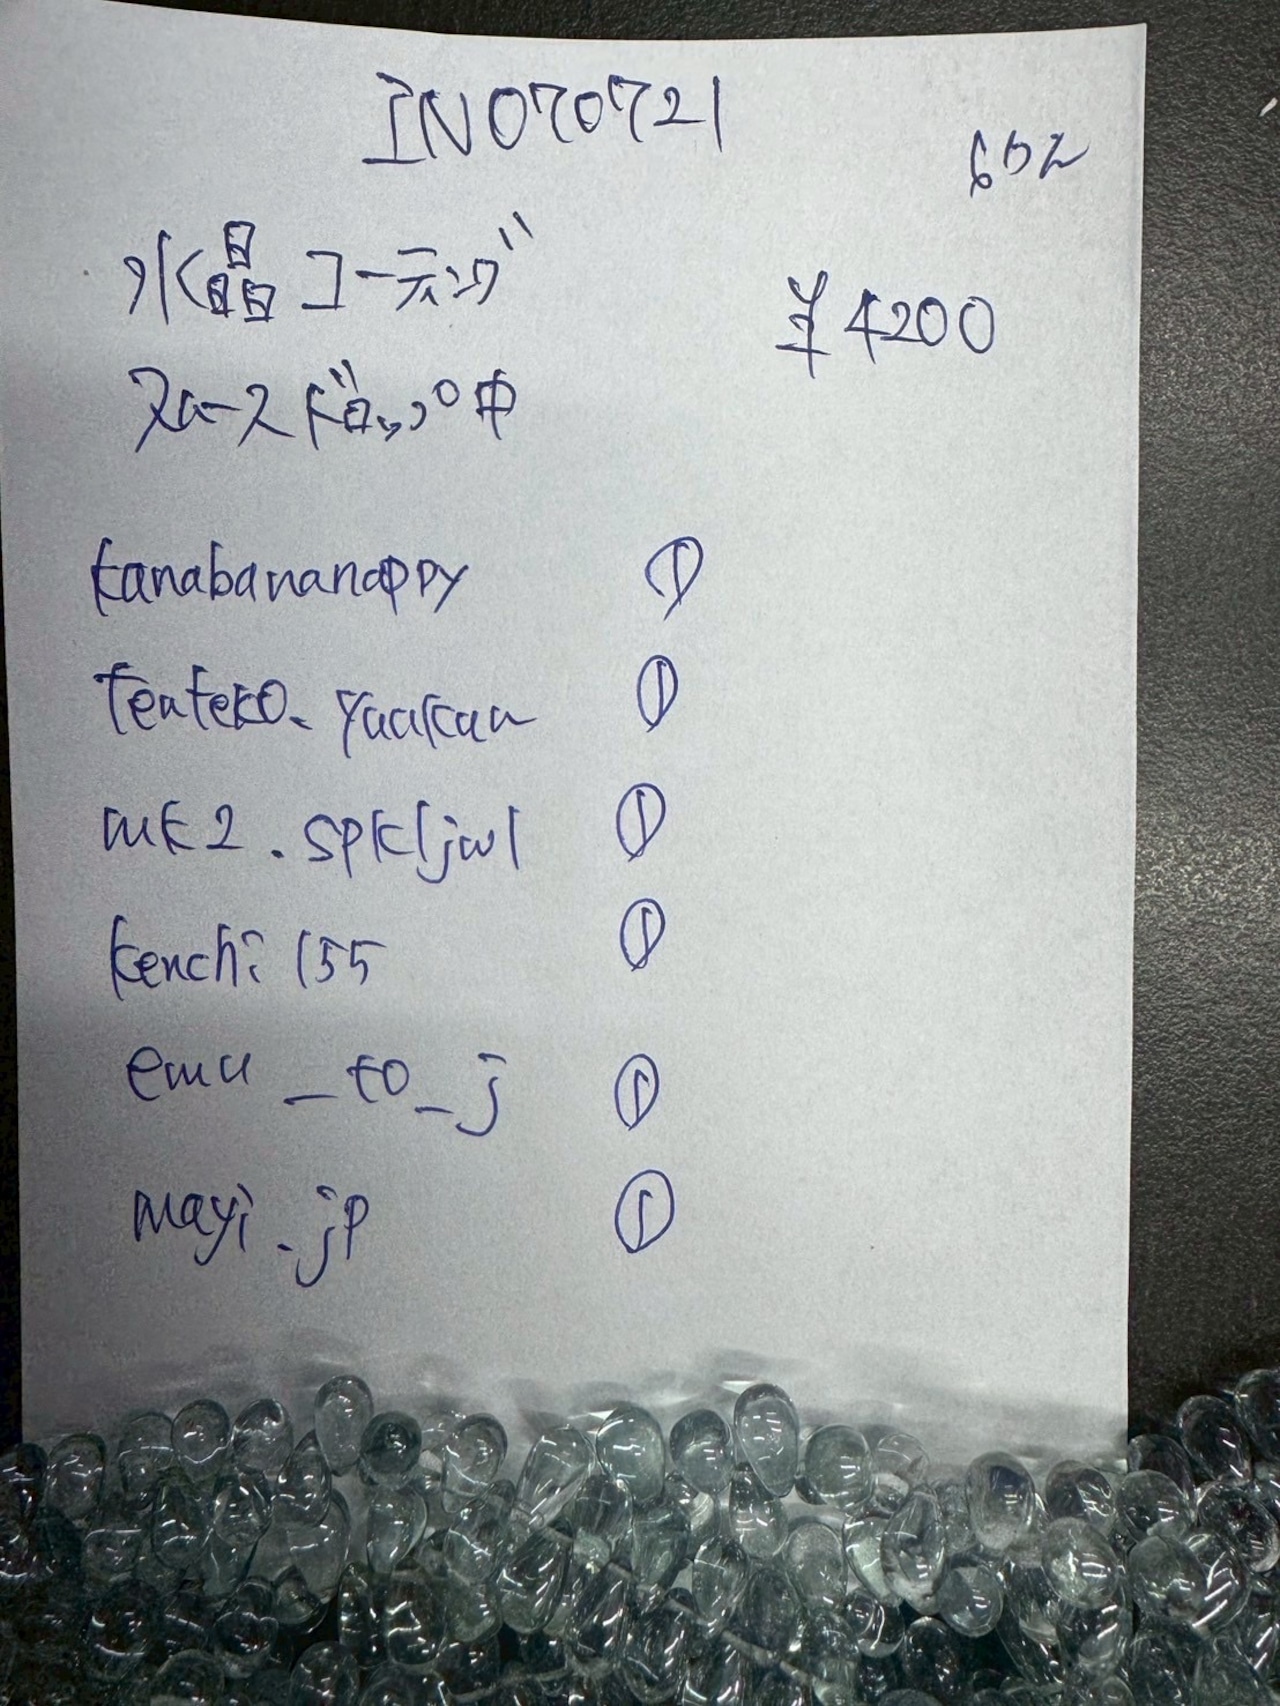 INO70721
602
水晶コーティング
¥4200
スムースドロップ中
kanabananappy ①
tenteko_yaakaa ①
mk2.spkljwl ①
kenchi155 ①
emu_to_j ①
mayi.jp ①